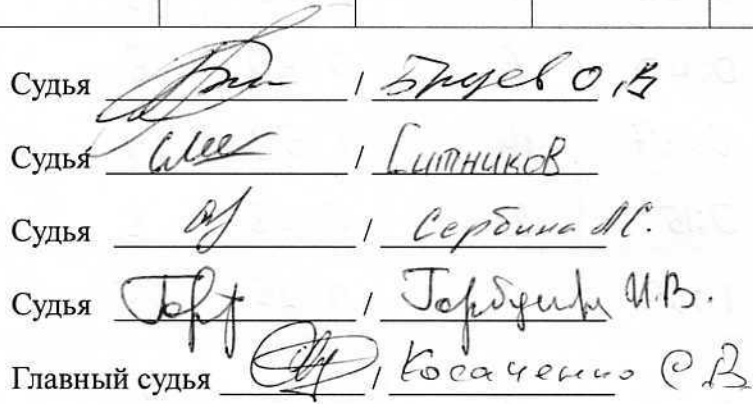 Судья / О.В
Судья / Ситников
Судья / Сербина А.С.
Судья / И.В.
Главный судья / Косаченко С.В